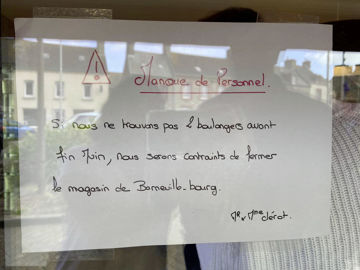 Manque de Personnel.
Si nous ne trouvons pas 2 boulangers avant
fin Juin, nous serons contraints de fermer
le magasin de Barneville-bourg.
Mr & Mme dérot.